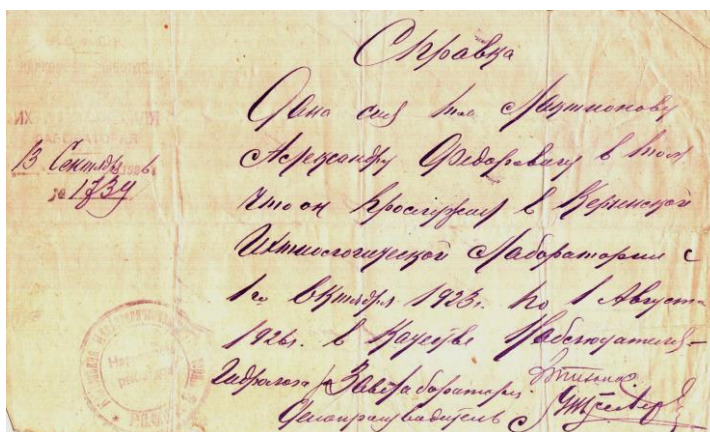 Справка
Дана сия тов Лактионову
Александру Федоровичу в том
что он прослужил в Керченской
Ихтиологической Лаборатории с
1го Октября 1923г. по 1 Августа
1926г. в качестве Наблюдателя-
Гидролога Завлабораторией
Делопроизводитель
ЛАБОРАТОРИЯ
13 Сентября 1926
№ 1734